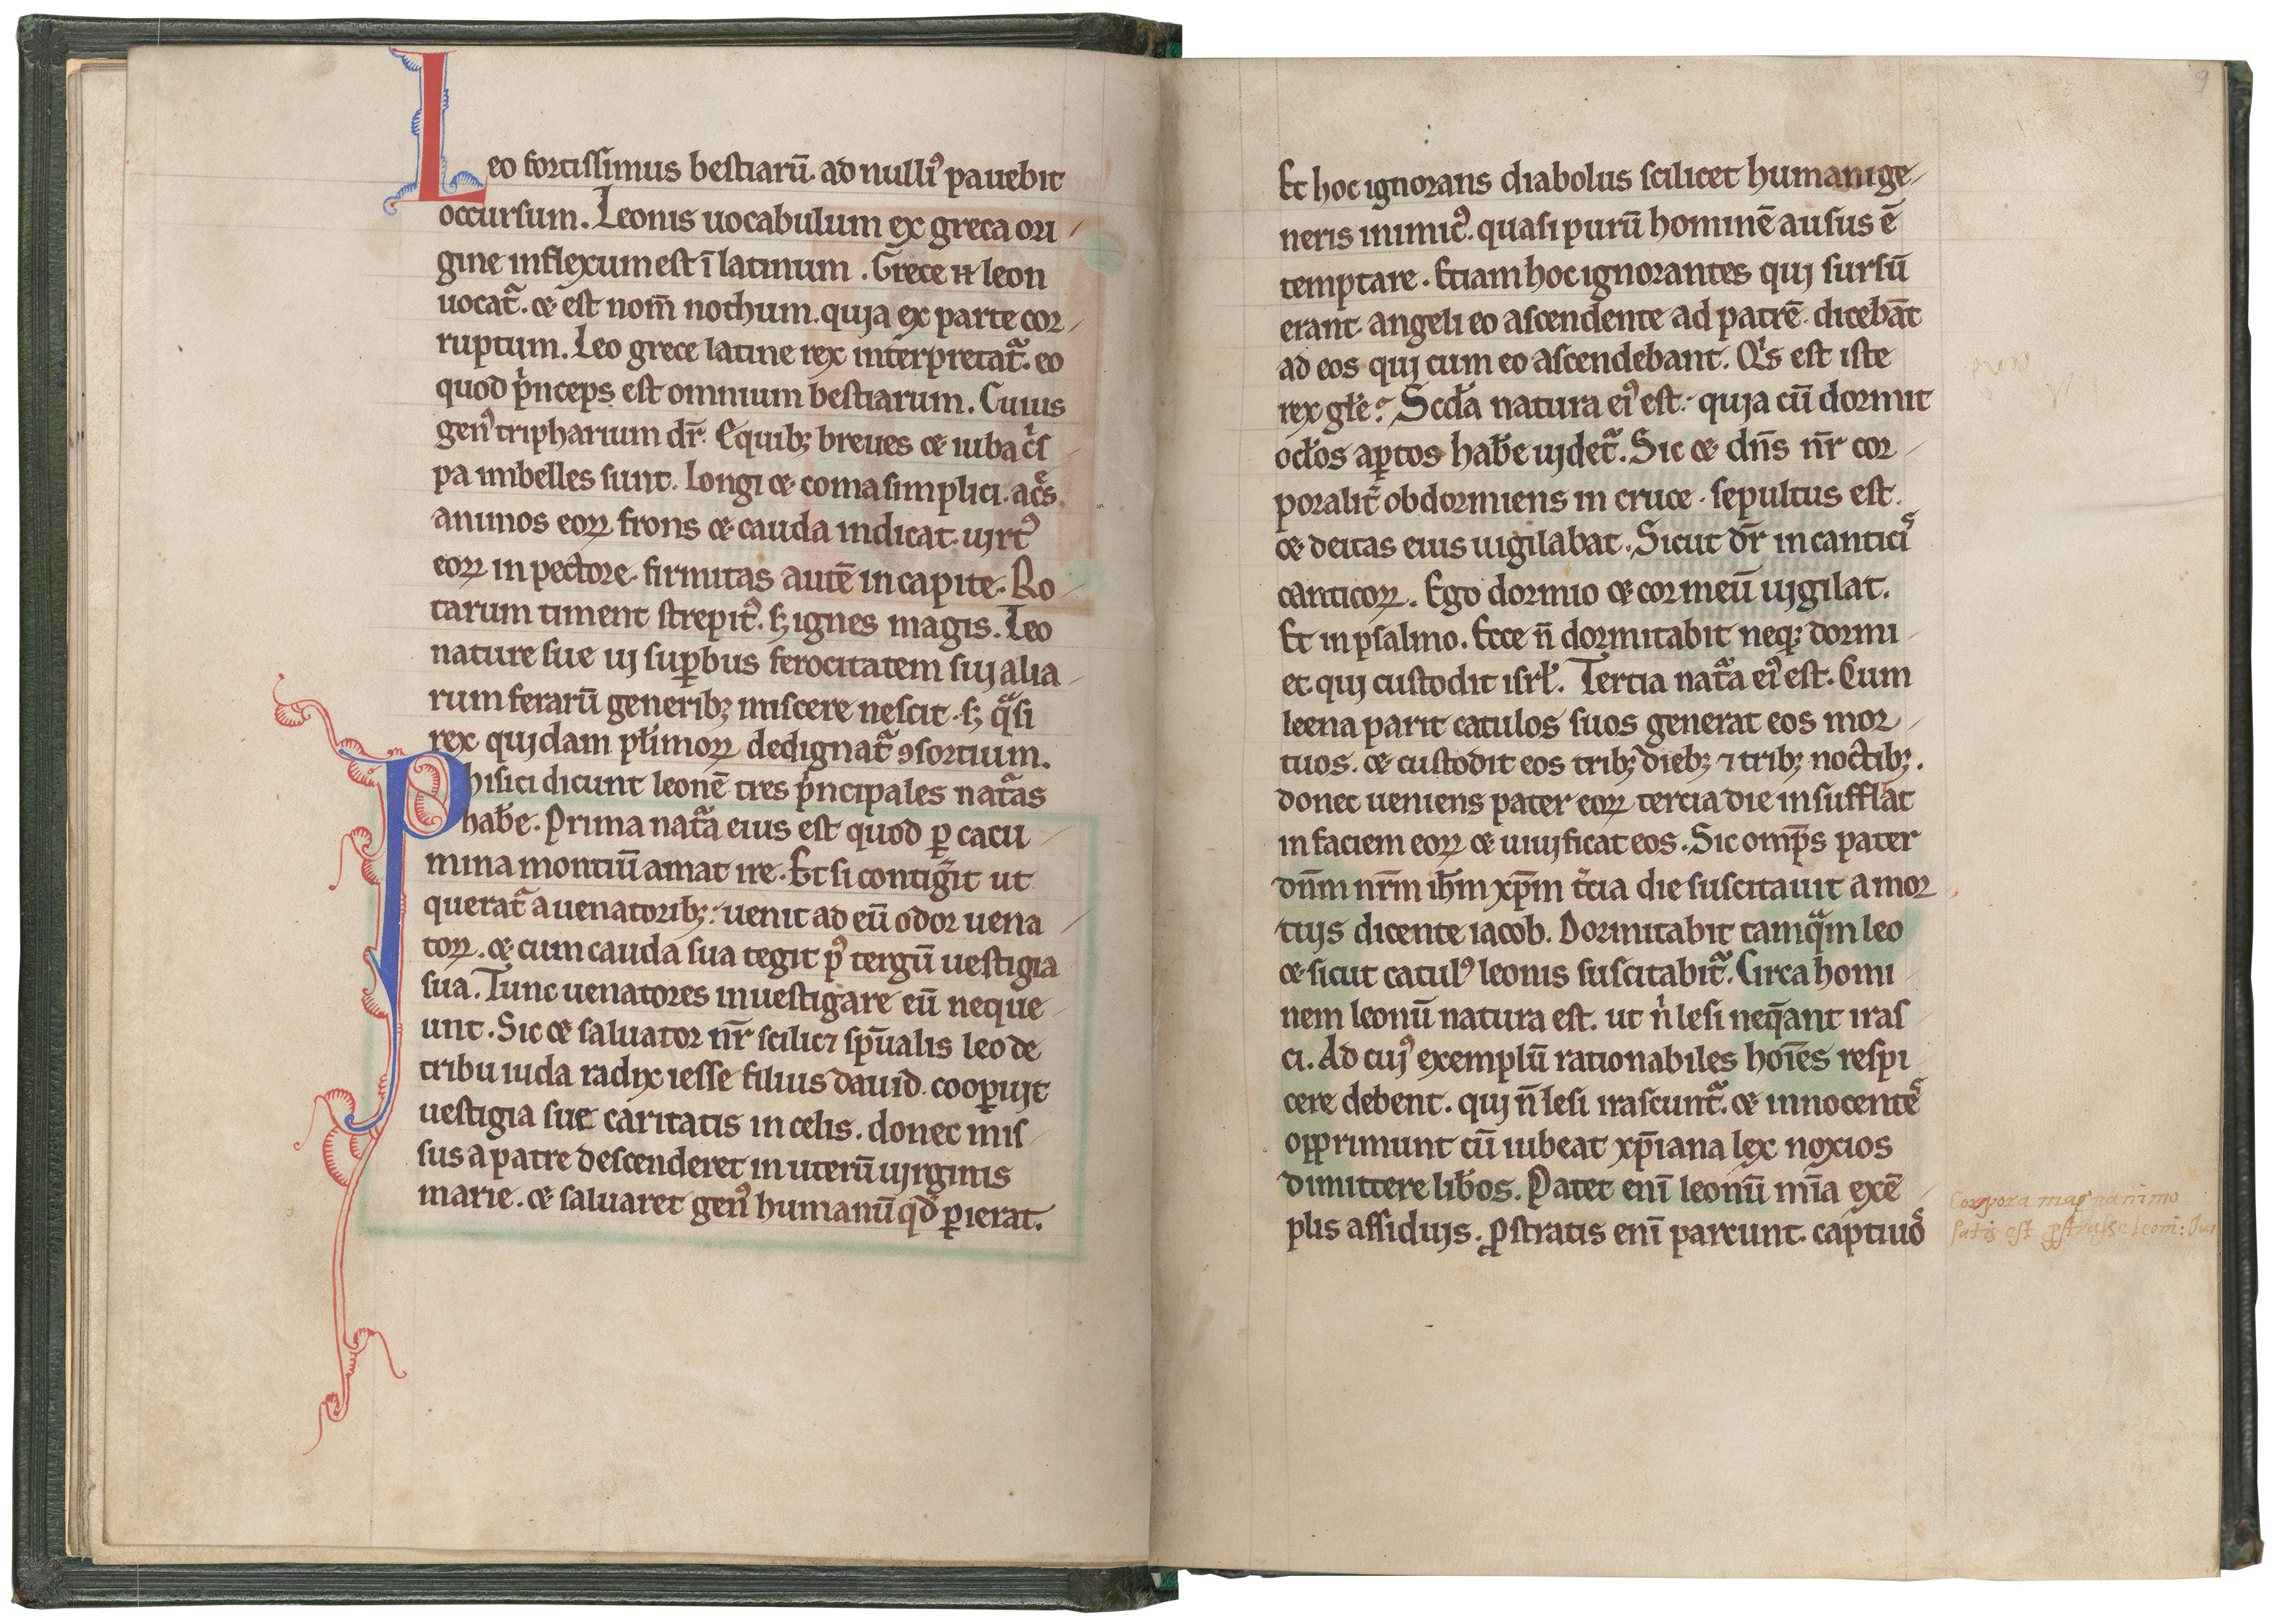 Leo fortissimus bestiarū. ad nulliꝰ pauebit
occursum. Leonis uocabulum ex greca ori
gine inflexum est ī latinum. Grece n̄ leon
uocat᷑. ⁊ est nom̄ nothum. quia ex parte cor
ruptum. Leo grece latine rex interpretat᷑. eo
quod pͥnceps est omnium bestiarum. Cuius
genꝰ tripharium dr̄. E quibꝫ breues ⁊ iuba cͥs
pa imbelles sunt. Longi ⁊ coma simplici. acͤs.
animos eoꝝ frons ⁊ cauda indicat. uirtꝰ
eoꝝ in pectore. firmitas autē in capite. Ro
tarum timent strepitꝰ. sꝫ ignes magis. Leo
nature sue ui suꝑbus ferocitatem sui alia
rum ferarū generibꝫ miscere nescit. sꝫ qͣsi
rex quidam plͥimoꝝ dedignat᷑ ꝯsortium.
Phisici dicunt leonē tres pͥncipales natͣas
hab̄e. Prima natͣa eius est quod ꝑ cacu
mina montiū amat ire. Et si contig̃it ut
querat᷑ a uenatoribꝫ: uenit ad eū odor uena
toꝝ. ⁊ cum cauda sua tegit pꝰ tergū uestigia
sua. Tunc uenatores inuestigare eū neque
unt. Sic ⁊ saluator nr̄ scilicꝫ sp̄ualis leo de
tribu iuda radix iesse filius dauid. cooꝑuit
uestigia sue caritatis in celis. donec mis
sus a patre descenderet in uterū uirginis
marie. ⁊ saluaret genꝰ humanū qd̄ ꝑierat.
9
Et hoc ignorans diabolus scilicet humani ge
neris inimicꝰ. quasi purū hominē ausus ē
temptare. Etiam hoc ignorantes qui sursū
erant angeli eo ascendente ad patrē. dicebāt
ad eos qui cum eo ascendebant. Qͥs est iste
rex gl̄e? Scd̄a natura eiꝰ est: quia cū dormit
ocl̄os aꝑtos hab̄e uidet᷑. Sic ⁊ dn̄s nr̄ cor
poralit̾ obdormiens in cruce. sepultus est.
⁊ deitas eius uigilabat. Sicut dr̄ in canticiˢ
canticoꝝ. Ego dormio ⁊ cor meū uigilat.
Et in psalmo. Ecce n̄ dormitabit neqꝫ dormi
et. qui custodit isrl̄. Tercia natͣa eiꝰ est. Cum
leena parit catulos suos generat eos mor
tuos. ⁊ custodit eos tribꝫ diebꝫ ⁊ tribꝫ noctibꝫ.
donec ueniens pater eoꝝ tercia die insufflat
in faciem eoꝝ ⁊ uiuificat eos. Sic omp̄s pater
dn̄m nr̄m ih̄m xp̄m t̾cia die suscitauit a mor
tuis dicente iacob. Dormitabit tamqͣm leo
⁊ sicut catulꝰ leonis suscitabit᷑. Circa homi
nem leonū natura est. ut nͥ lesi neq̄ant iras
ci. Ad cuiꝰ exemplū rationabiles hoīes respi
cere debent. qui n̄ lesi irascunt᷑. ⁊ innocenteˢ
opprimunt cū iubeat xp̄iana lex noxios
dimittere lib̾os. Patet enī leonū mīa exē
plis assiduis. ꝓstratis enī parcunt. captiuoˢ
Corpora magnanimo
satis est ꝓstrasse leoni: